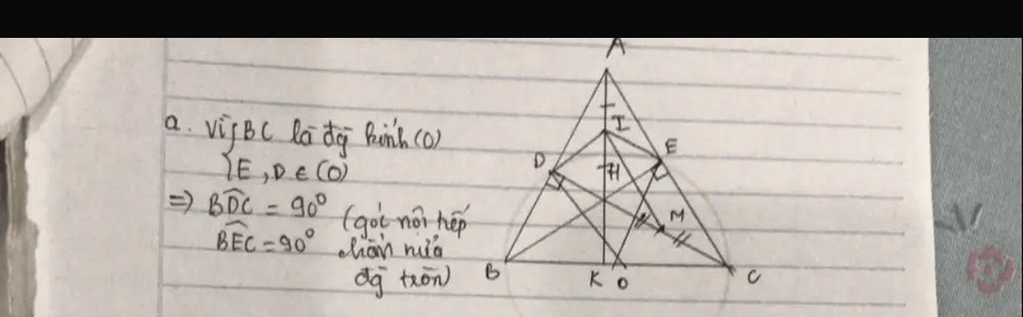 a. Vì { BC là đg kính (O)
{ E, D ∈ (O)
=> BDC = 90° (góc nội tiếp
BEC = 90° chắn nửa
đg tròn)
A
I
D
E
H
M
B
K
O
C